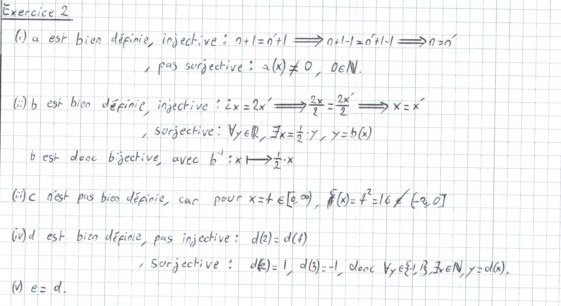 Exercice 2
(i) a est bien définie, injective : n+1 = n'+1 ⟹ n+1-1 = n'+1-1 ⟹ n = n'
, pas surjective : a(x) ≠ 0, 0∈ℕ.
(ii) b est bien définie, injective : 2x = 2x' ⟹ 2x/2 = 2x'/2 ⟹ x = x'
, surjective : ∀y∈ℝ, ∃x = 1/2·y, y = b(x)
b est donc bijective, avec b⁻¹ : x ⟼ 1/2·x
(iii) c n'est pas bien définie, car pour x = 4 ∈ [0,∞), (x) = 4² = 16 ∉
(iv) d est bien définie, pas injective : d(2) = d(4)
, surjective : d(2) = 1, d(3) = -1, donc ∀y∈{-1,1}, ∃x∈ℕ, y = d(x).
(v) e = d.